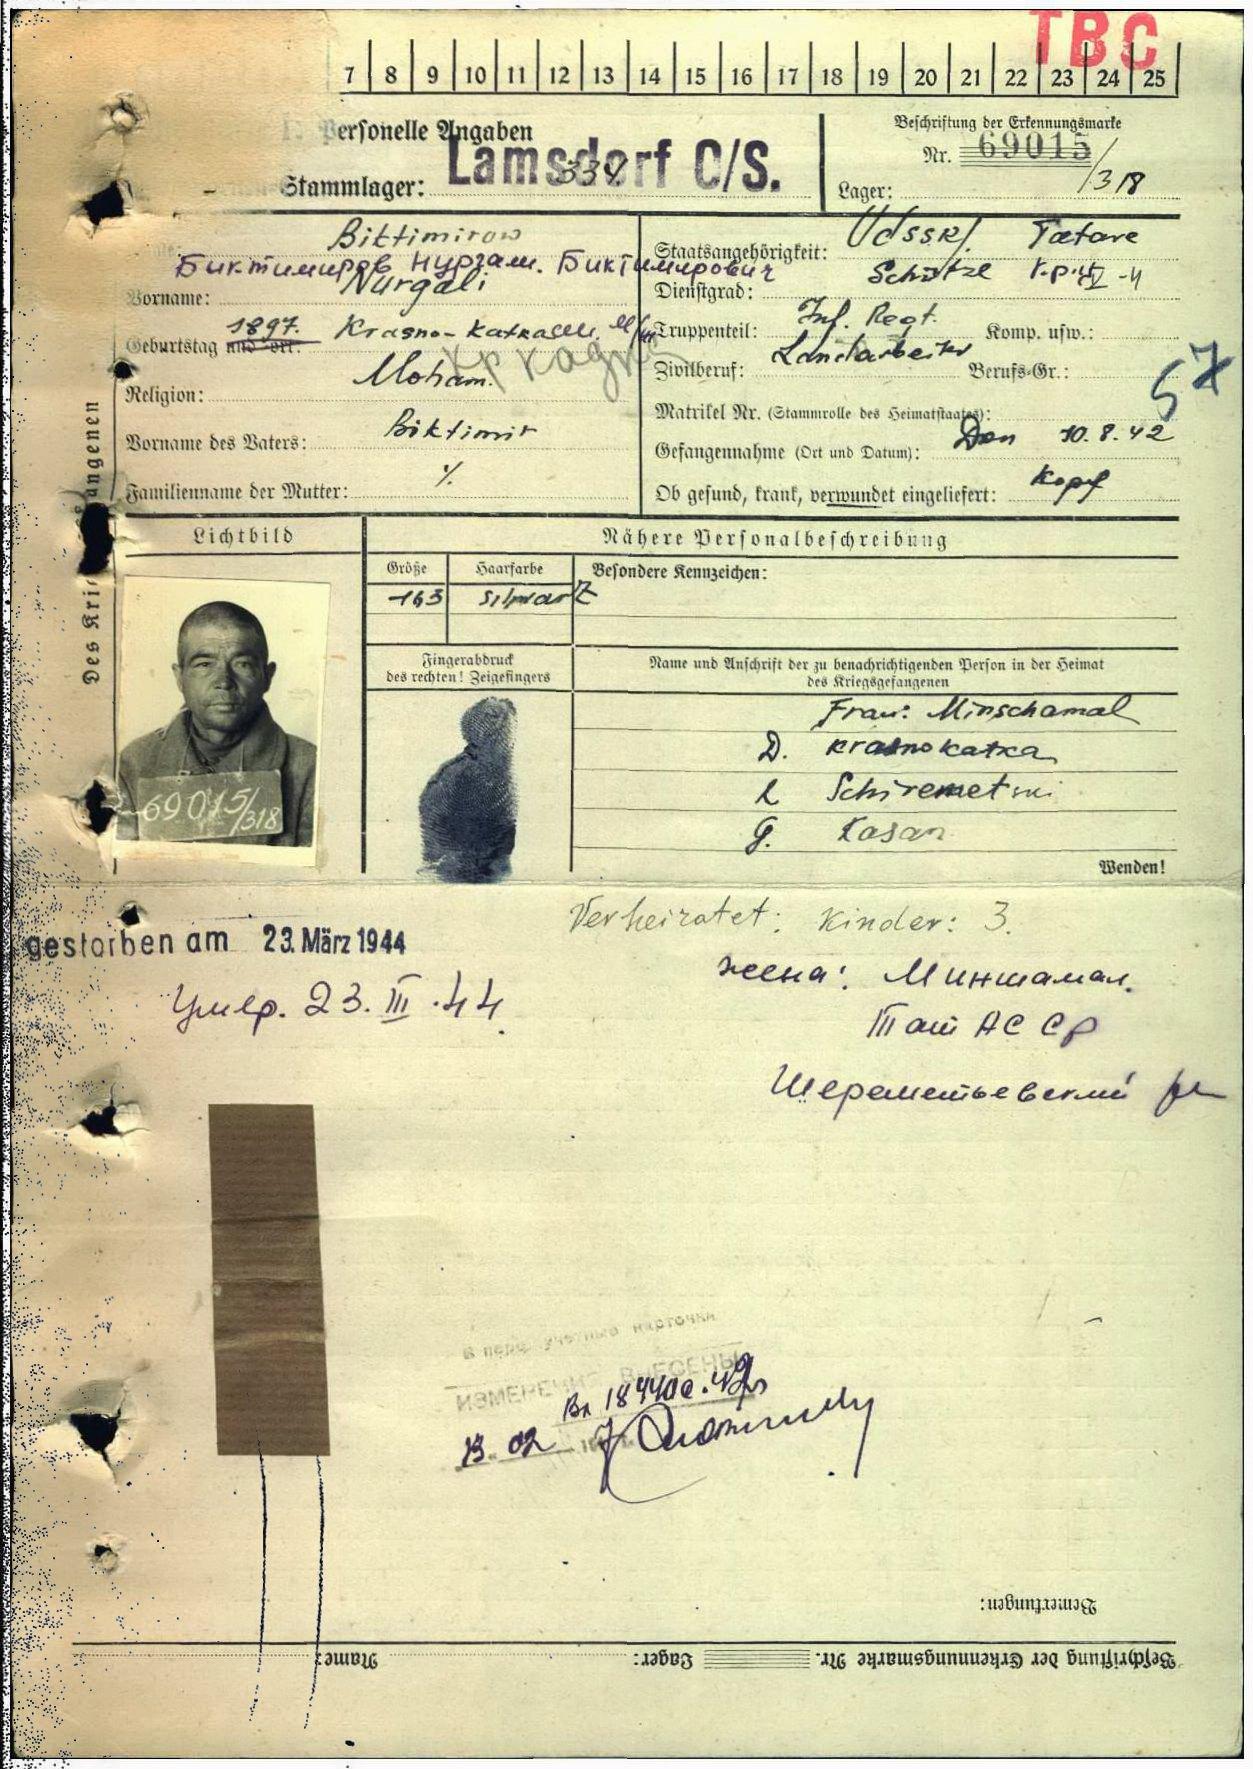 TBC
7 8 9 10 11 12 13 14 15 16 17 18 19 20 21 22 23 24 25
Personelle Angaben
Beschriftung der Erkennungsmarke
Lamsdorf C/S.
Nr. 69015/318
Stammlager:
Lager:
Des Krie gefangenen
Biktimirow
Биктимиров Нургали. Биктимирович
Vorname: Nurgali
Geburtstag und -ort: 1897. Krasno-Katka
Religion: Moham.
Vorname des Vaters: Biktimir
Familienname der Mutter: ٪
Staatsangehörigkeit: UdSSR/. Tatare
Dienstgrad: Schütze
Truppenteil: Inf. Regt. Komp. usw.:
Zivilberuf: Landarbeiter Berufs-Gr.:
57
Matrikel Nr. (Stammrolle des Heimatstaates):
Gefangennahme (Ort und Datum): Don 10.8.42
Ob gesund, krank, verwundet eingeliefert: Kopf
Lichtbild
Nähere Personalbeschreibung
Größe Haarfarbe Besondere Kennzeichen:
163 schwarz
Fingerabdruck
des rechten! Zeigefingers
Name und Anschrift der zu benachrichtigenden Person in der Heimat
des Kriegsgefangenen
Frau: Minschamal
D. Krasnokatka
R Schiremetski
G. Kasan
69015/318
Wenden!
Verheiratet: Kinder: 3.
gestorben am 23. März 1944
Умер. 23. III .44.
жена: Миншамал.
Тат АССР
Шереметьевский рн
в перс учетные карточки
ИЗМЕНЕНИЯ ВНЕСЕНЫ
Bemerkungen:
Beschriftung der Erkennungsmarke Nr. Lager: Name: